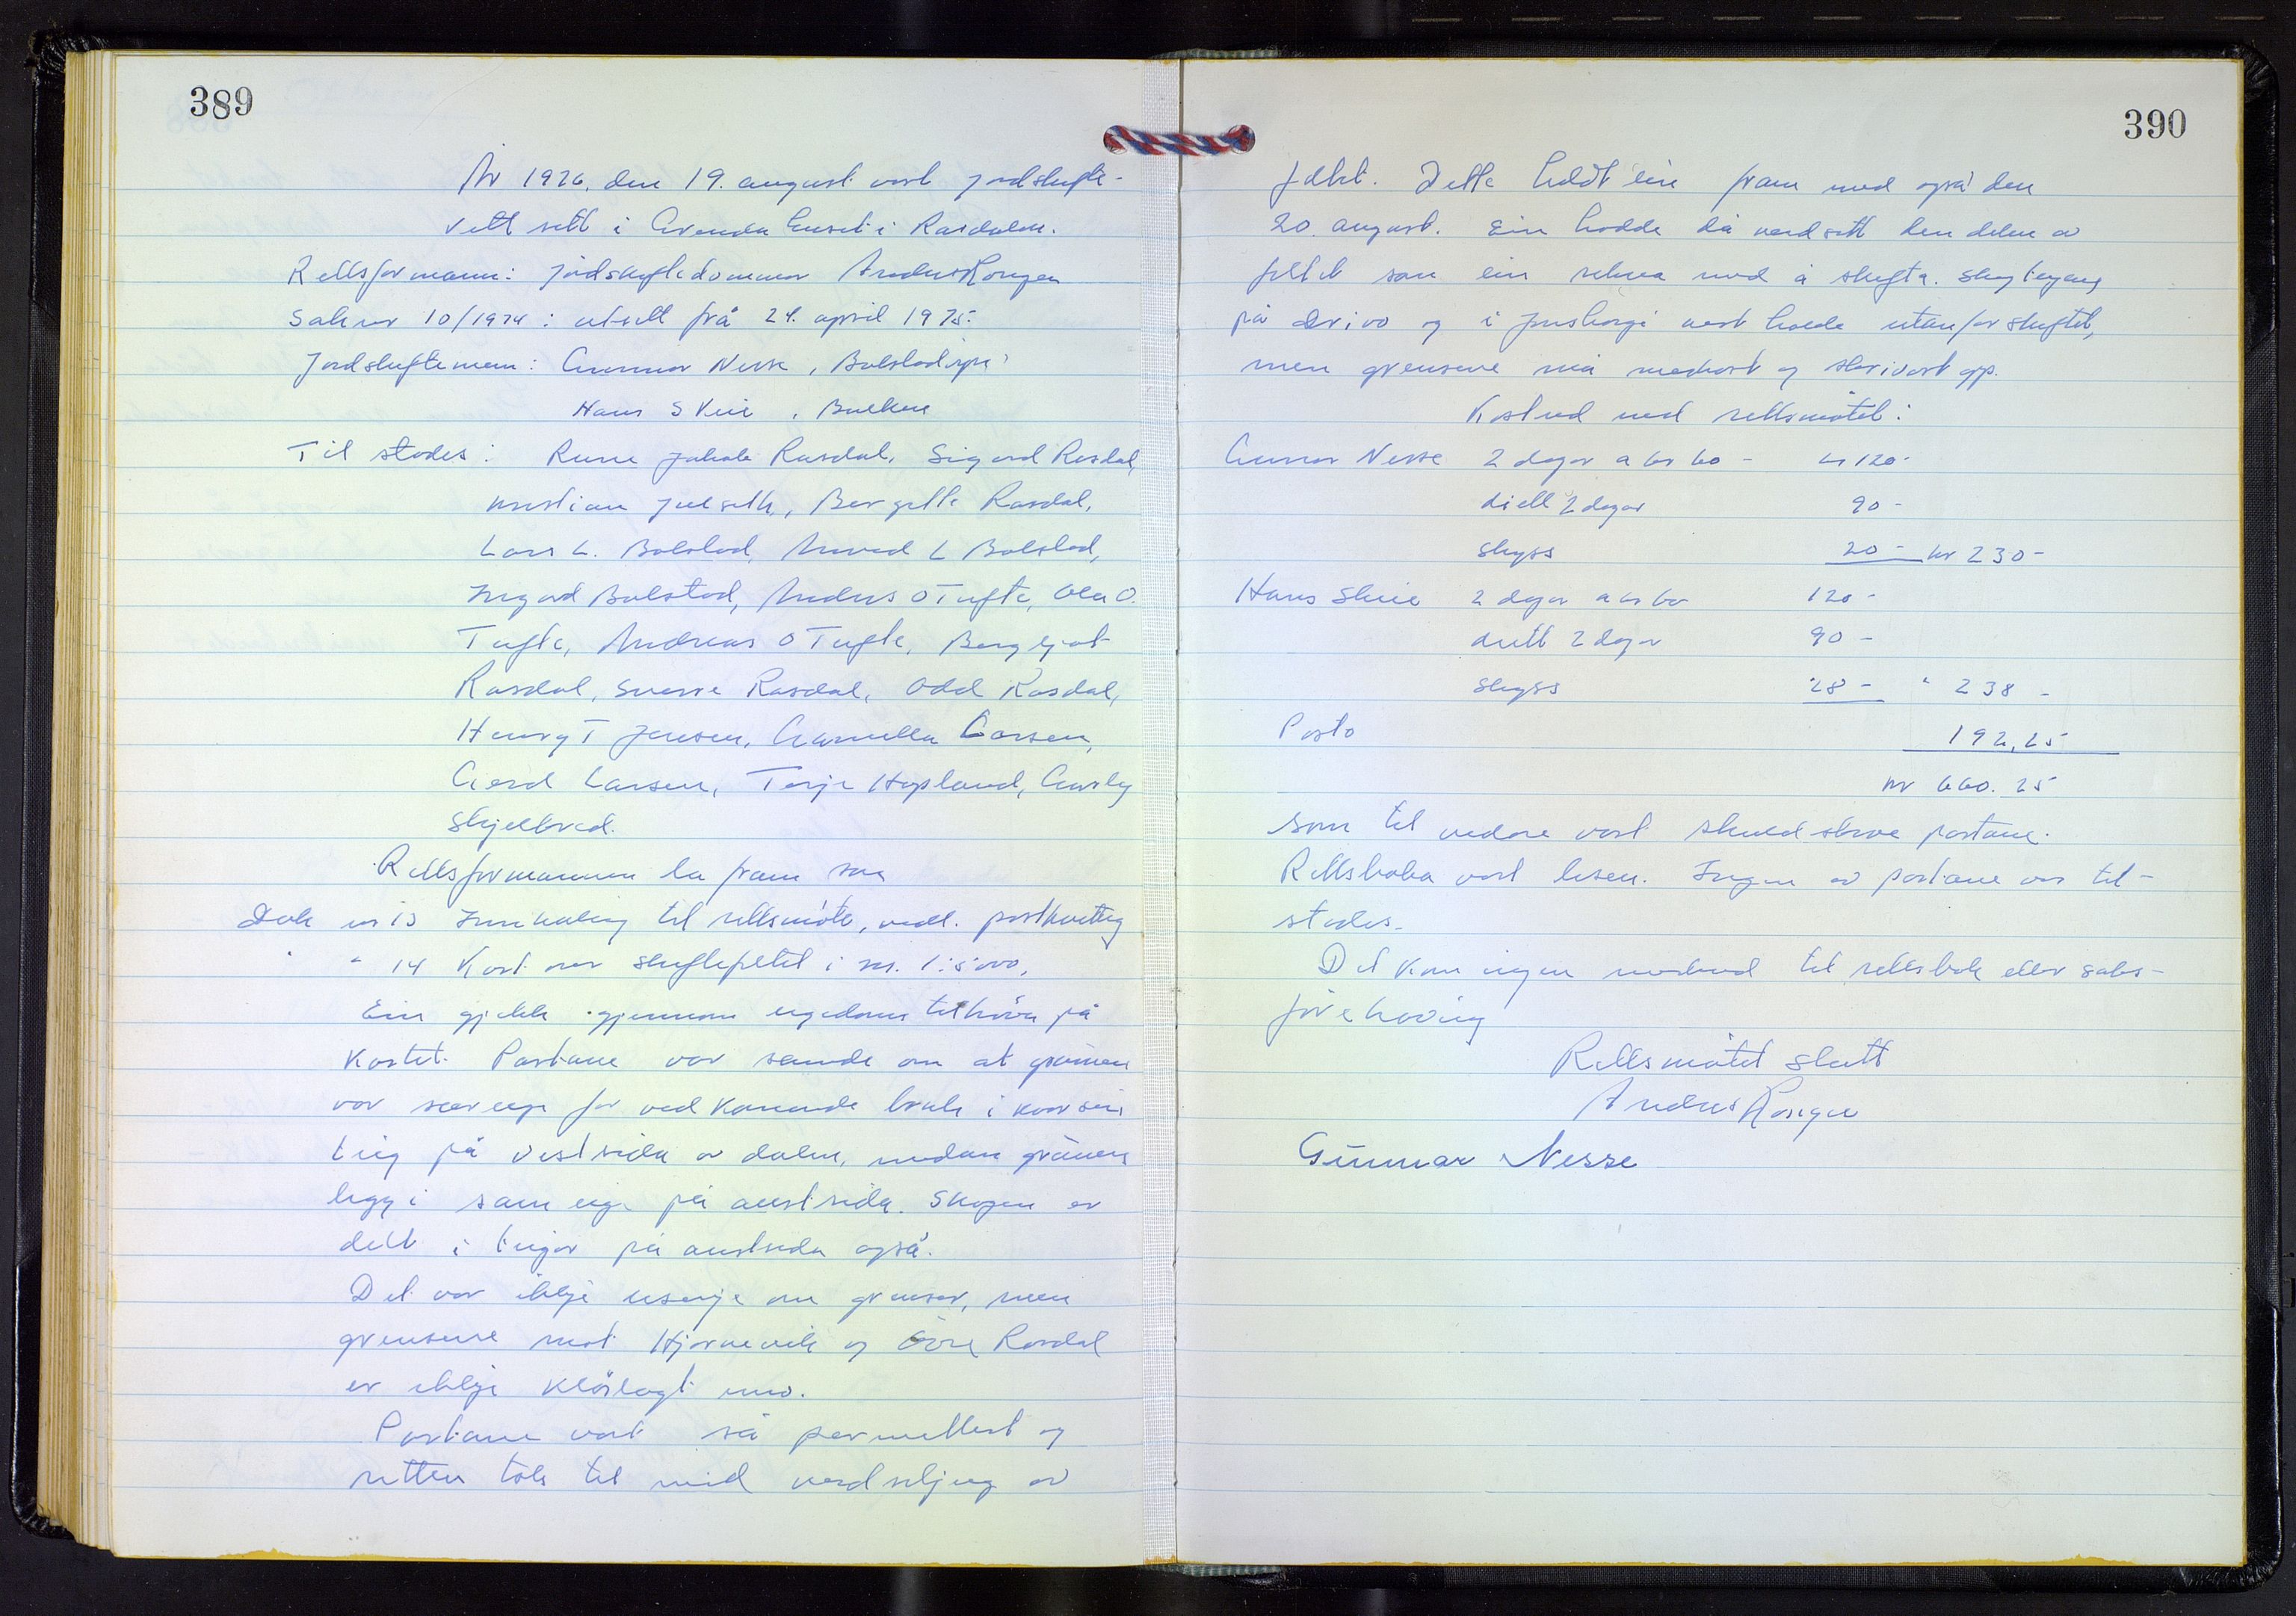 389
År 1976, den 19. august vart jordskifte-
rett sett i Grendahuset i Rasdalen.
Rettsformann: jordskiftedommar Anders Rongen
Saknr 10/1974: utsett frå 24. april 1975.
Jordskiftemenn: Gunnar Nesse, Bolstadøyri
Hans Skeie, Bulken
Til stades: Rune Jakob Rasdal, Sigurd Rasdal,
Kristian Julseth, Bergitte Rasdal,
Lars L. Bolstad, Amund L Bolstad,
Ingvard Bolstad, Anders O Tufte, Ola O.
Tufte, Andreas O Tufte, Bergljot
Rasdal, Sverre Rasdal, Odd Rasdal,
Henry T Jensen, Gunnella Larsen,
Gerd Larsen, Terje Hopland,
Skjelbred.
Rettsformannen la fram som
Dok nr 13 Innkalling til rettsmøte, vedl. postkvittg
" " 14 Kart over skiftefeltet i m. 1:5000.
Ein gjekk gjennom eigedomstilhøva på
Kartet. Partane var samde om at grunnen
var særeige for vedkomande bruk i kvar sin
teig på vestsida av dalen, medan grunnen
ligg i sameige på austsida. Skogen er
delt i teigar på austsida også.
Det var ikkje usemje om grenser, men
grensene mot Hjørnevik og Øvre Rasdal
er ikkje klårlagt enno.
Partane vart så permittert og
retten tok til med verdsetjing av
390
feltet. Dette heldt ein fram med også den
20. august. Ein hadde då verdsett den delen av
feltet som ein rekna med å skifta.
på og i vert halde utanfor skiftet,
men grensene må merkast og skrivast opp.
Kostnad med rettsmøtet:
Gunnar Nesse 2 dagar a kr 60 - kr 120 -
diett 2 dagar 90 -
skyss 20 - kr 230 -
Hans Skeie 2 dagar a kr 60 120 -
diett 2 dagar 90 -
skyss 28 - " 238 -
Porto 192,25
kr 660.25
som til vidare vart skuldskrive partane.
Rettsboka vart lesen. Ingen av partane var til-
stades.
Det kom ingen merknad til rettsbok eller saks-
førehaving
Rettsmøtet slutt
Anders Rongen
Gunnar Nesse